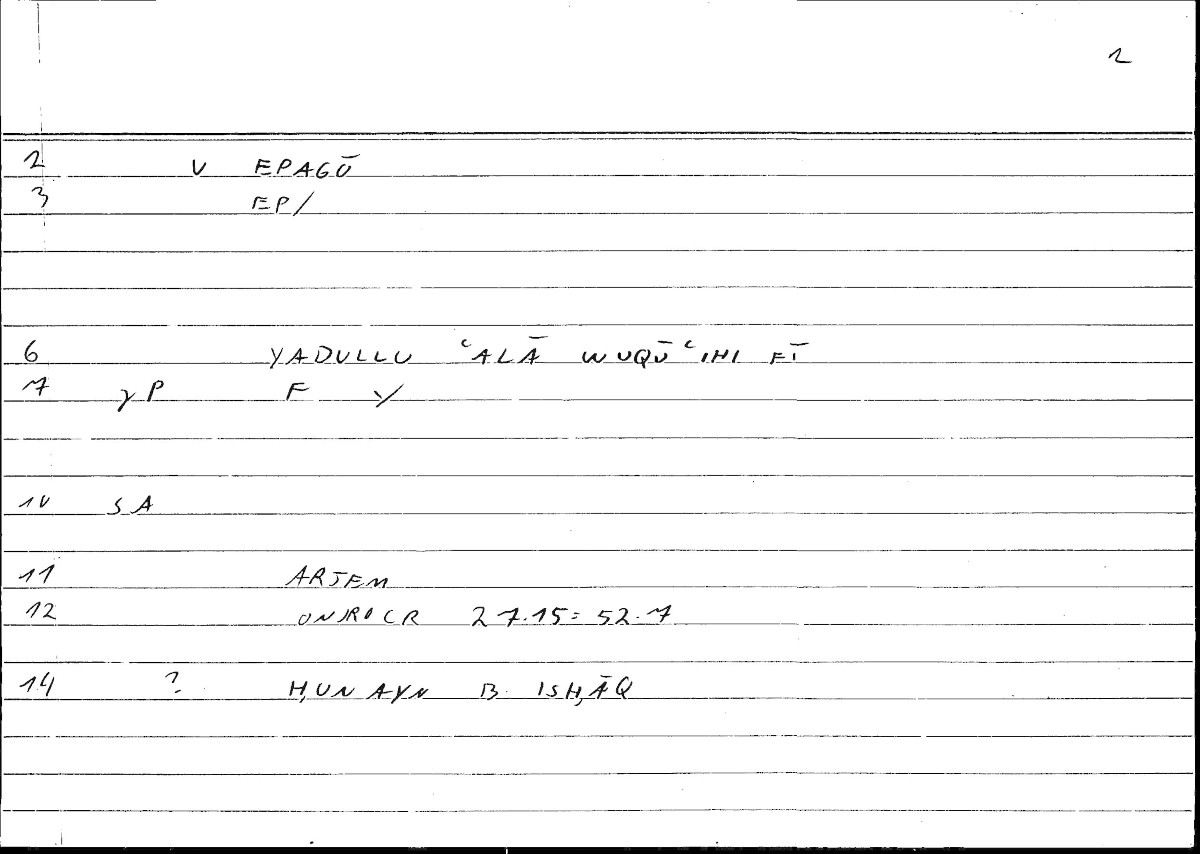 2
2 V EPAGŌ
3 EP/
6 YADULLU ʿALĀ WUQŪʿIHI FĪ
7 γP F
10 SA
11 ARTEM
12 ONIROCR 27.15 = 52.7
14 ? ḤUNAYN B. ISḤĀQ